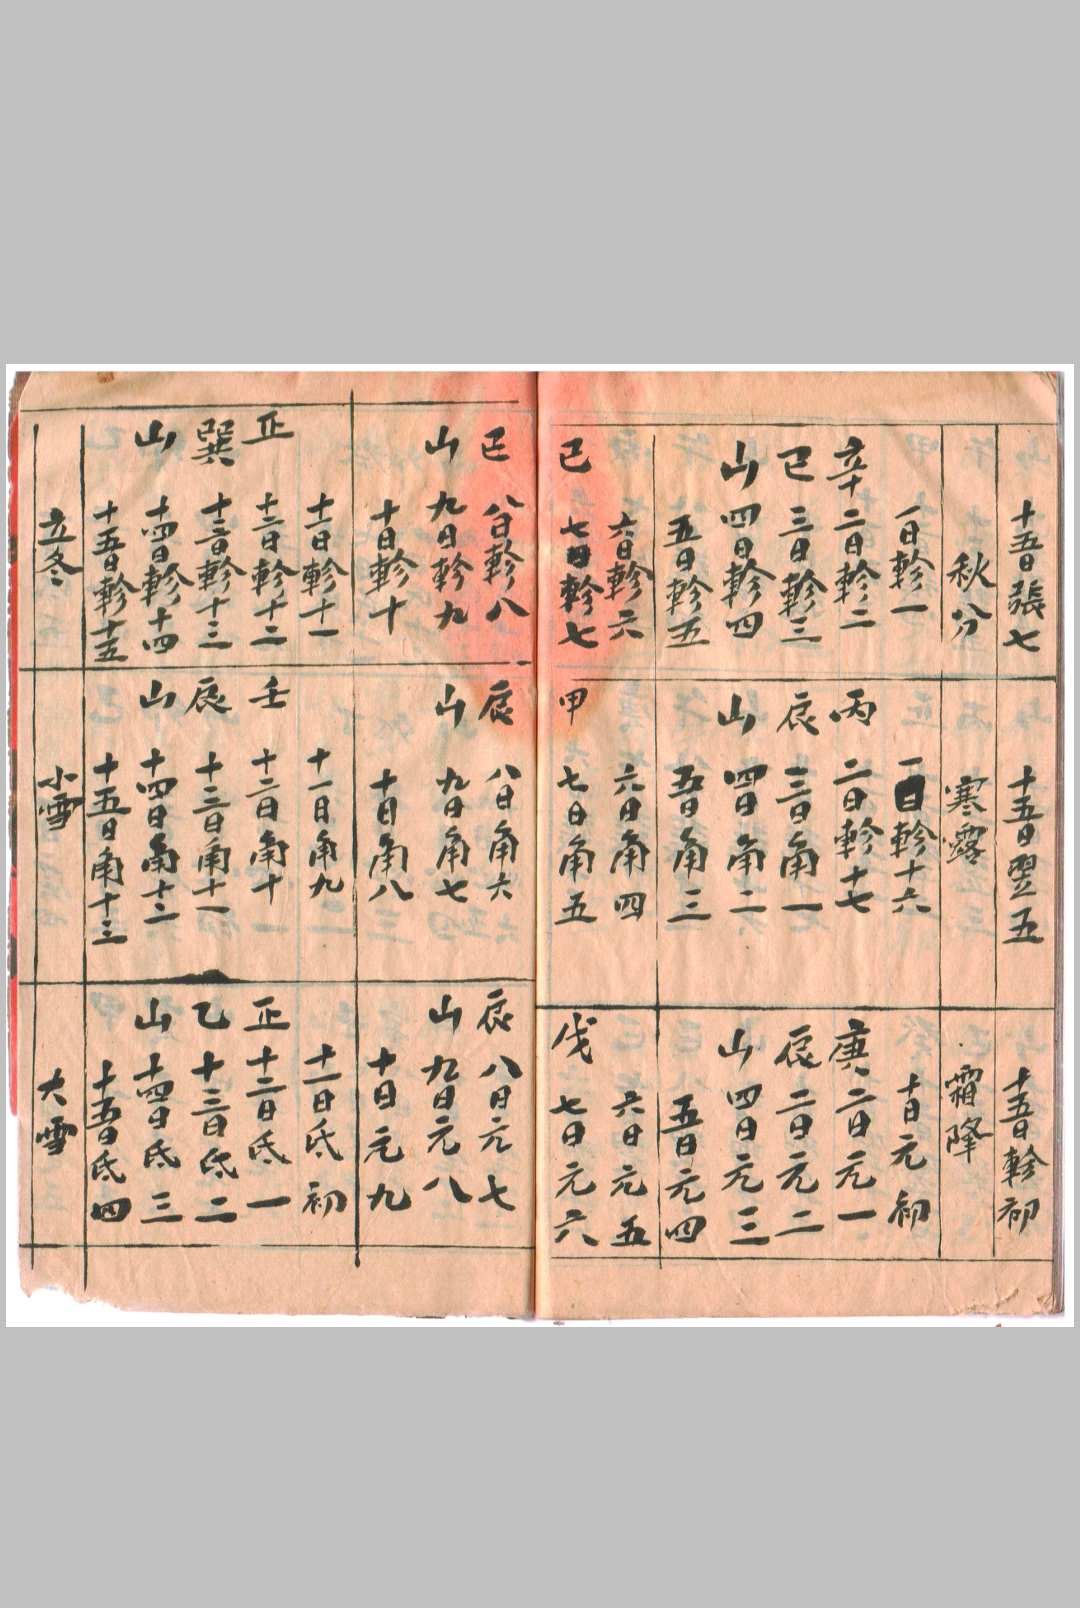 十五日張七
秋分
一日軫一
辛
二日軫二
巳
三日軫三
山
四日軫四
五日軫五
六日軫六
巳
七日軫七
巳
八日軫八
山
九日軫九
十日軫十
十一日軫十一
正
十二日軫十二
巽
十三日軫十三
山
十四日軫十四
十五日軫十五
立冬
十五日翌五
寒露
一日軫十六
丙
二日軫十七
辰
三日角一
山
四日角二
五日角三
六日角四
甲
七日角五
辰
八日角六
山
九日角七
十日角八
十一日角九
壬
十二日角十
辰
十三日角十一
山
十四日角十二
十五日角十三
小雪
十五日軫初
霜降
十日元初
庚
二日元一
辰
二日元二
山
四日元三
五日元四
六日元五
戊
七日元六
辰
八日元七
山
九日元八
十日元九
十一日氐初
正
十二日氐一
乙
十三日氐二
山
十四日氐三
十五日氐四
大雪